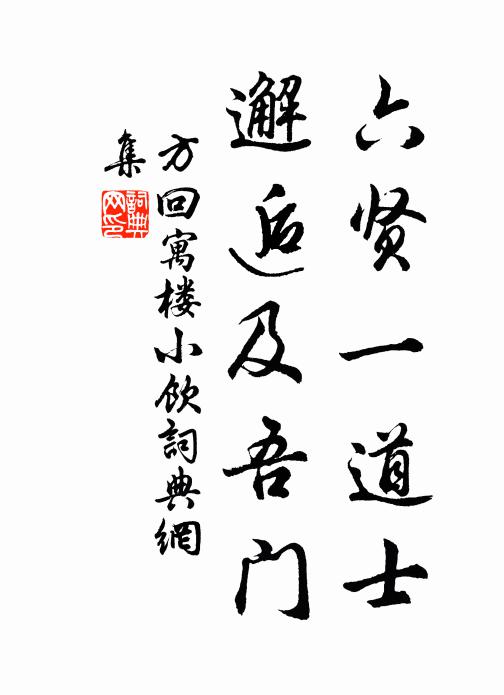 六贤一道士
邂逅及吾门
方回寓楼小饮詞典網
集
詞典网印